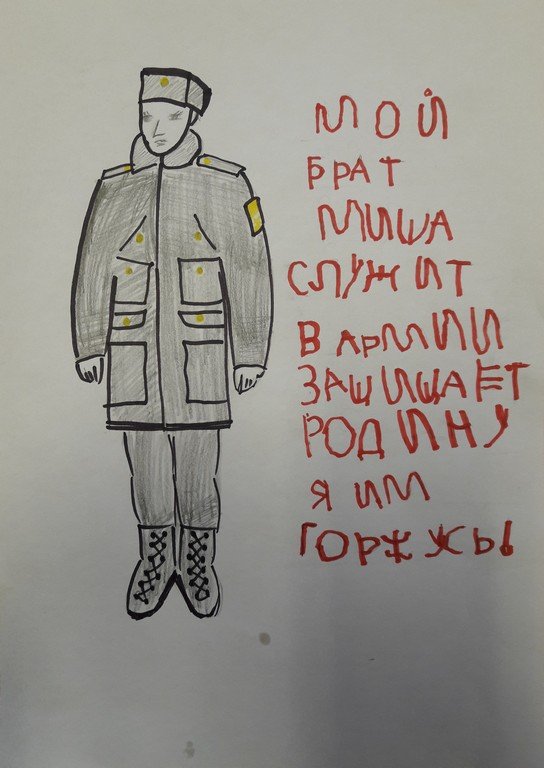 МОЙ
БРАТ
МИША
СЛУЖИТ
В АРМИИ
ЗАЩИЩАЕТ
РОДИНУ
Я ИМ
ГОРЖУСЬ!